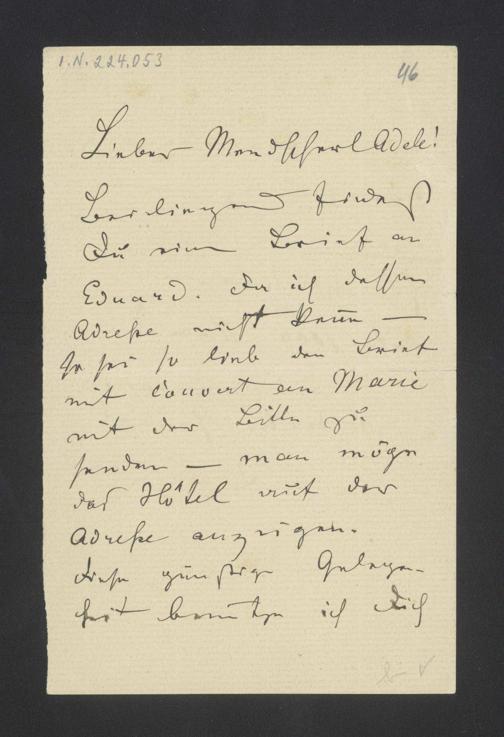 I.N. 224.053
46
Lieber Mendscherl Adele!
Beiliegend findest
Du einen Brief an
Eduard. Da ich dessen
Adreße nicht kenne —
so sei so lieb den Brief
mit Couvert an Marie
mit der Bitte zu
senden — man möge
das Hôtel auf der
Adreße anzeigen.
Diese günstige Gelegen-
heit benütze ich Dich